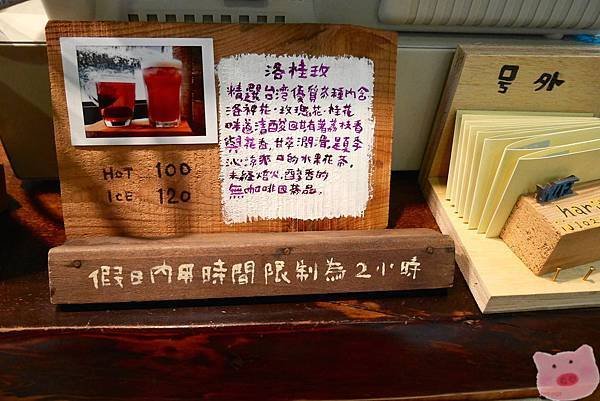 洛桂玫
精選台湾優質茶種內含
洛神花、玫瑰花、桂花
味道清酸回甘有著荔枝香
與花香，甘萃潤滑，是夏季
沁涼爽口的水果花茶。
未經焙火，醇香的
無咖啡因茶品。
HOT 100
ICE 120
假日內用時間限制為2小時
号外